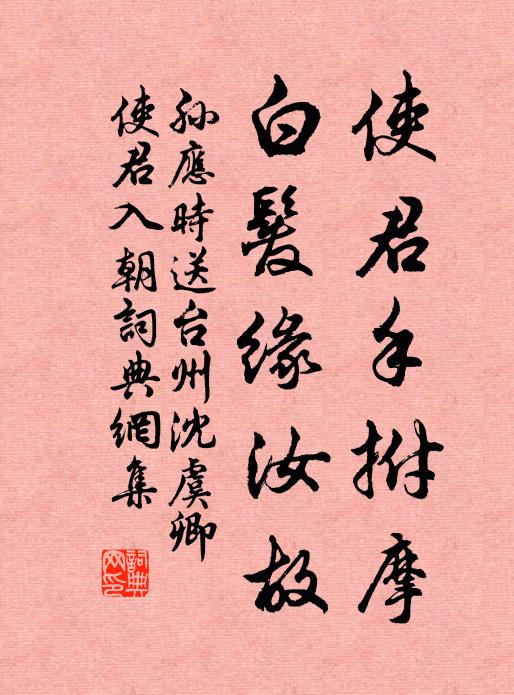 使君手拊摩
白髮緣汝故
孫應時送台州沈虞卿
使君入朝詞典網集
詞典网印